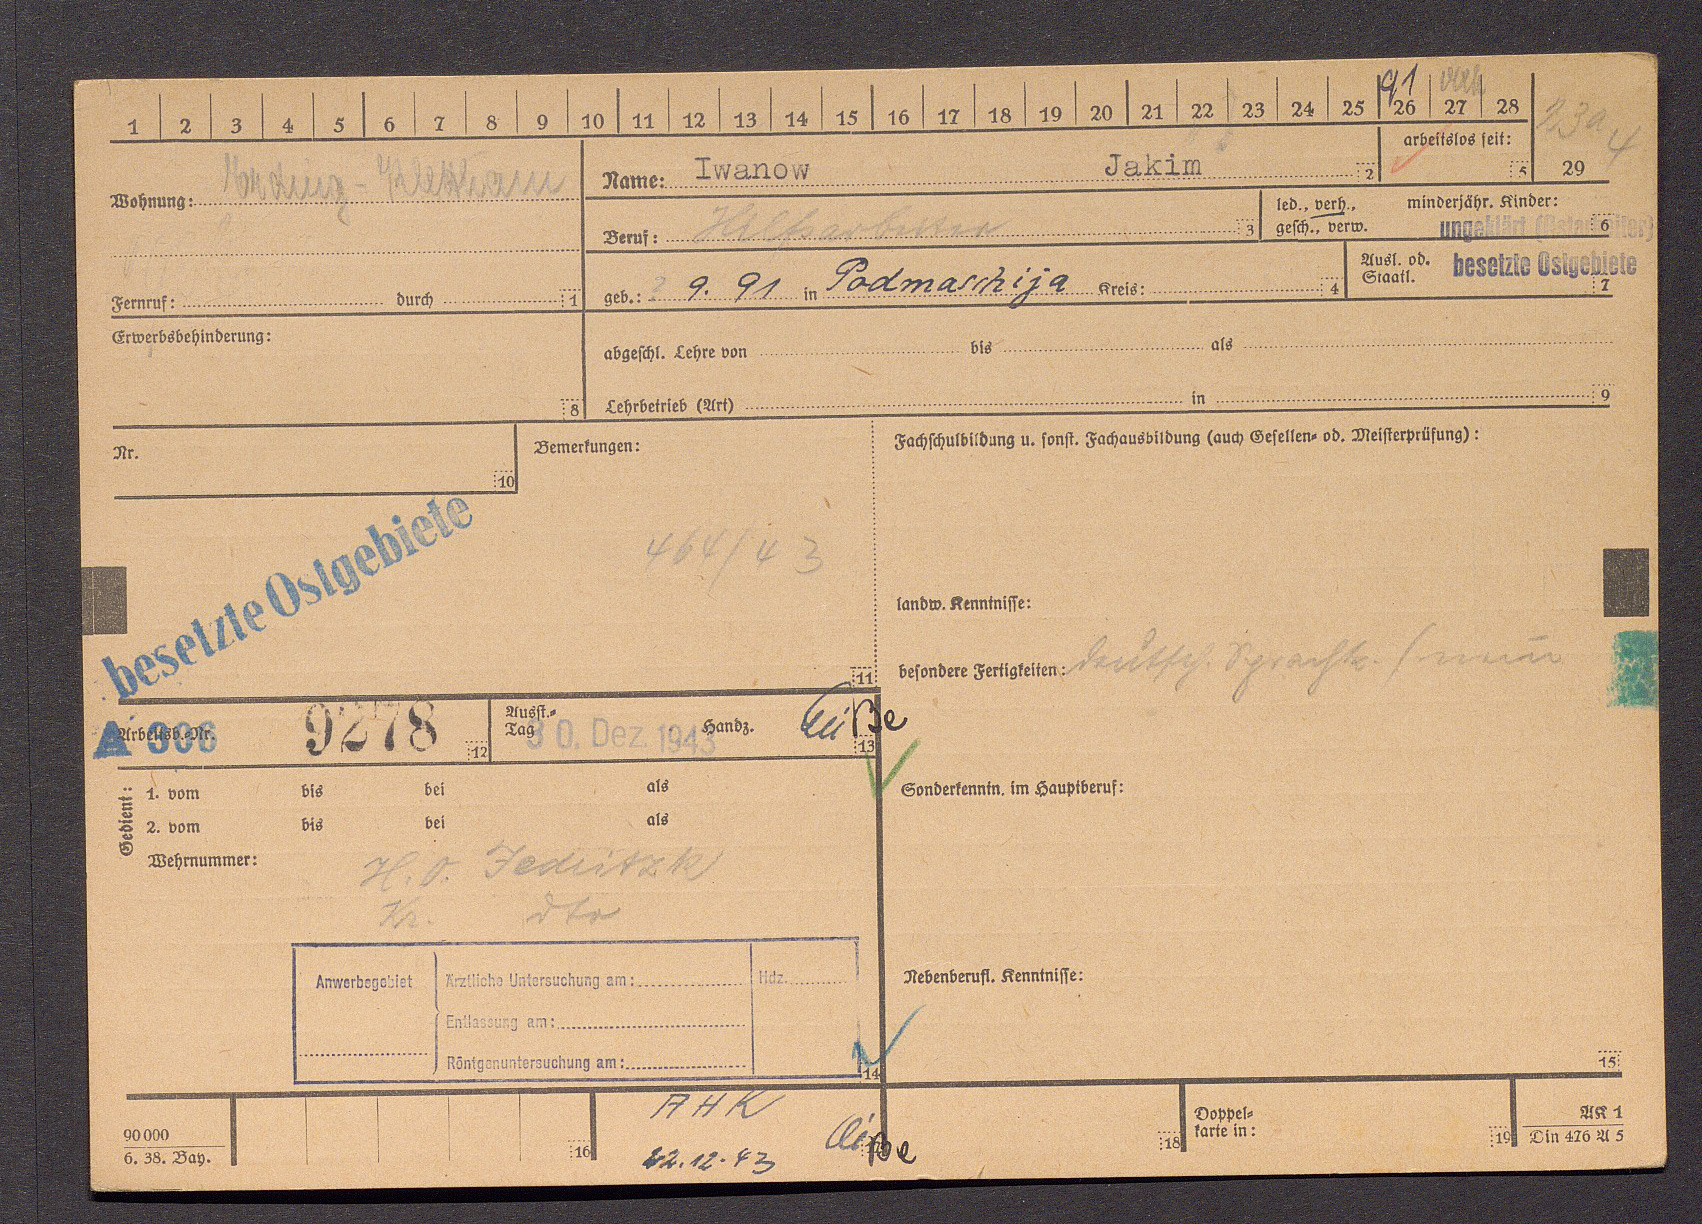 1 2 3 4 5 6 7 8 9 10 11 12 13 14 15 16 17 18 19 20 21 22 23 24 25 26 27 28
91 verh
23a 4
29
Wohnung:
Fernruf: durch 1
Name: Iwanow Jakim 2
arbeitslos seit: 5
Beruf: Hilfsarbeiter 3
led., verh., gesch., verw.
minderjähr. Kinder: 6
ungeklärt (Ostarbeiter)
geb.: ? 9. 91 in Podmaschija Kreis: 4
Ausl. od. Staatl. besetzte Ostgebiete 7
Erwerbsbehinderung: 8
abgeschl. Lehre von bis als
Lehrbetrieb (Art) in 9
Nr. 10
Bemerkungen:
464/43
11
besetzte Ostgebiete
Fachschulbildung u. sonst. Fachausbildung (auch Gesellen- od. Meisterprüfung):
landw. Kenntnisse:
besondere Fertigkeiten: deutsch. Sprachk. / nein
Arbeitsb.-Nr. A 306 9278 12
Ausst.-Tag 30. Dez. 1943 Handz. 13
Gedient:
1. vom bis bei als
2. vom bis bei als
Wehrnummer:
H.O. Jedlitzk
Kr. dto
Sonderkenntn. im Hauptberuf:
Nebenberufl. Kenntnisse:
15
Anwerbegebiet
Ärztliche Untersuchung am: Hdz.
Entlassung am:
Röntgenuntersuchung am:
14
90 000
6. 38. Bay.
16
AHK
22.12.43
18
Doppelkarte in: 19
AK 1
Din 476 A 5